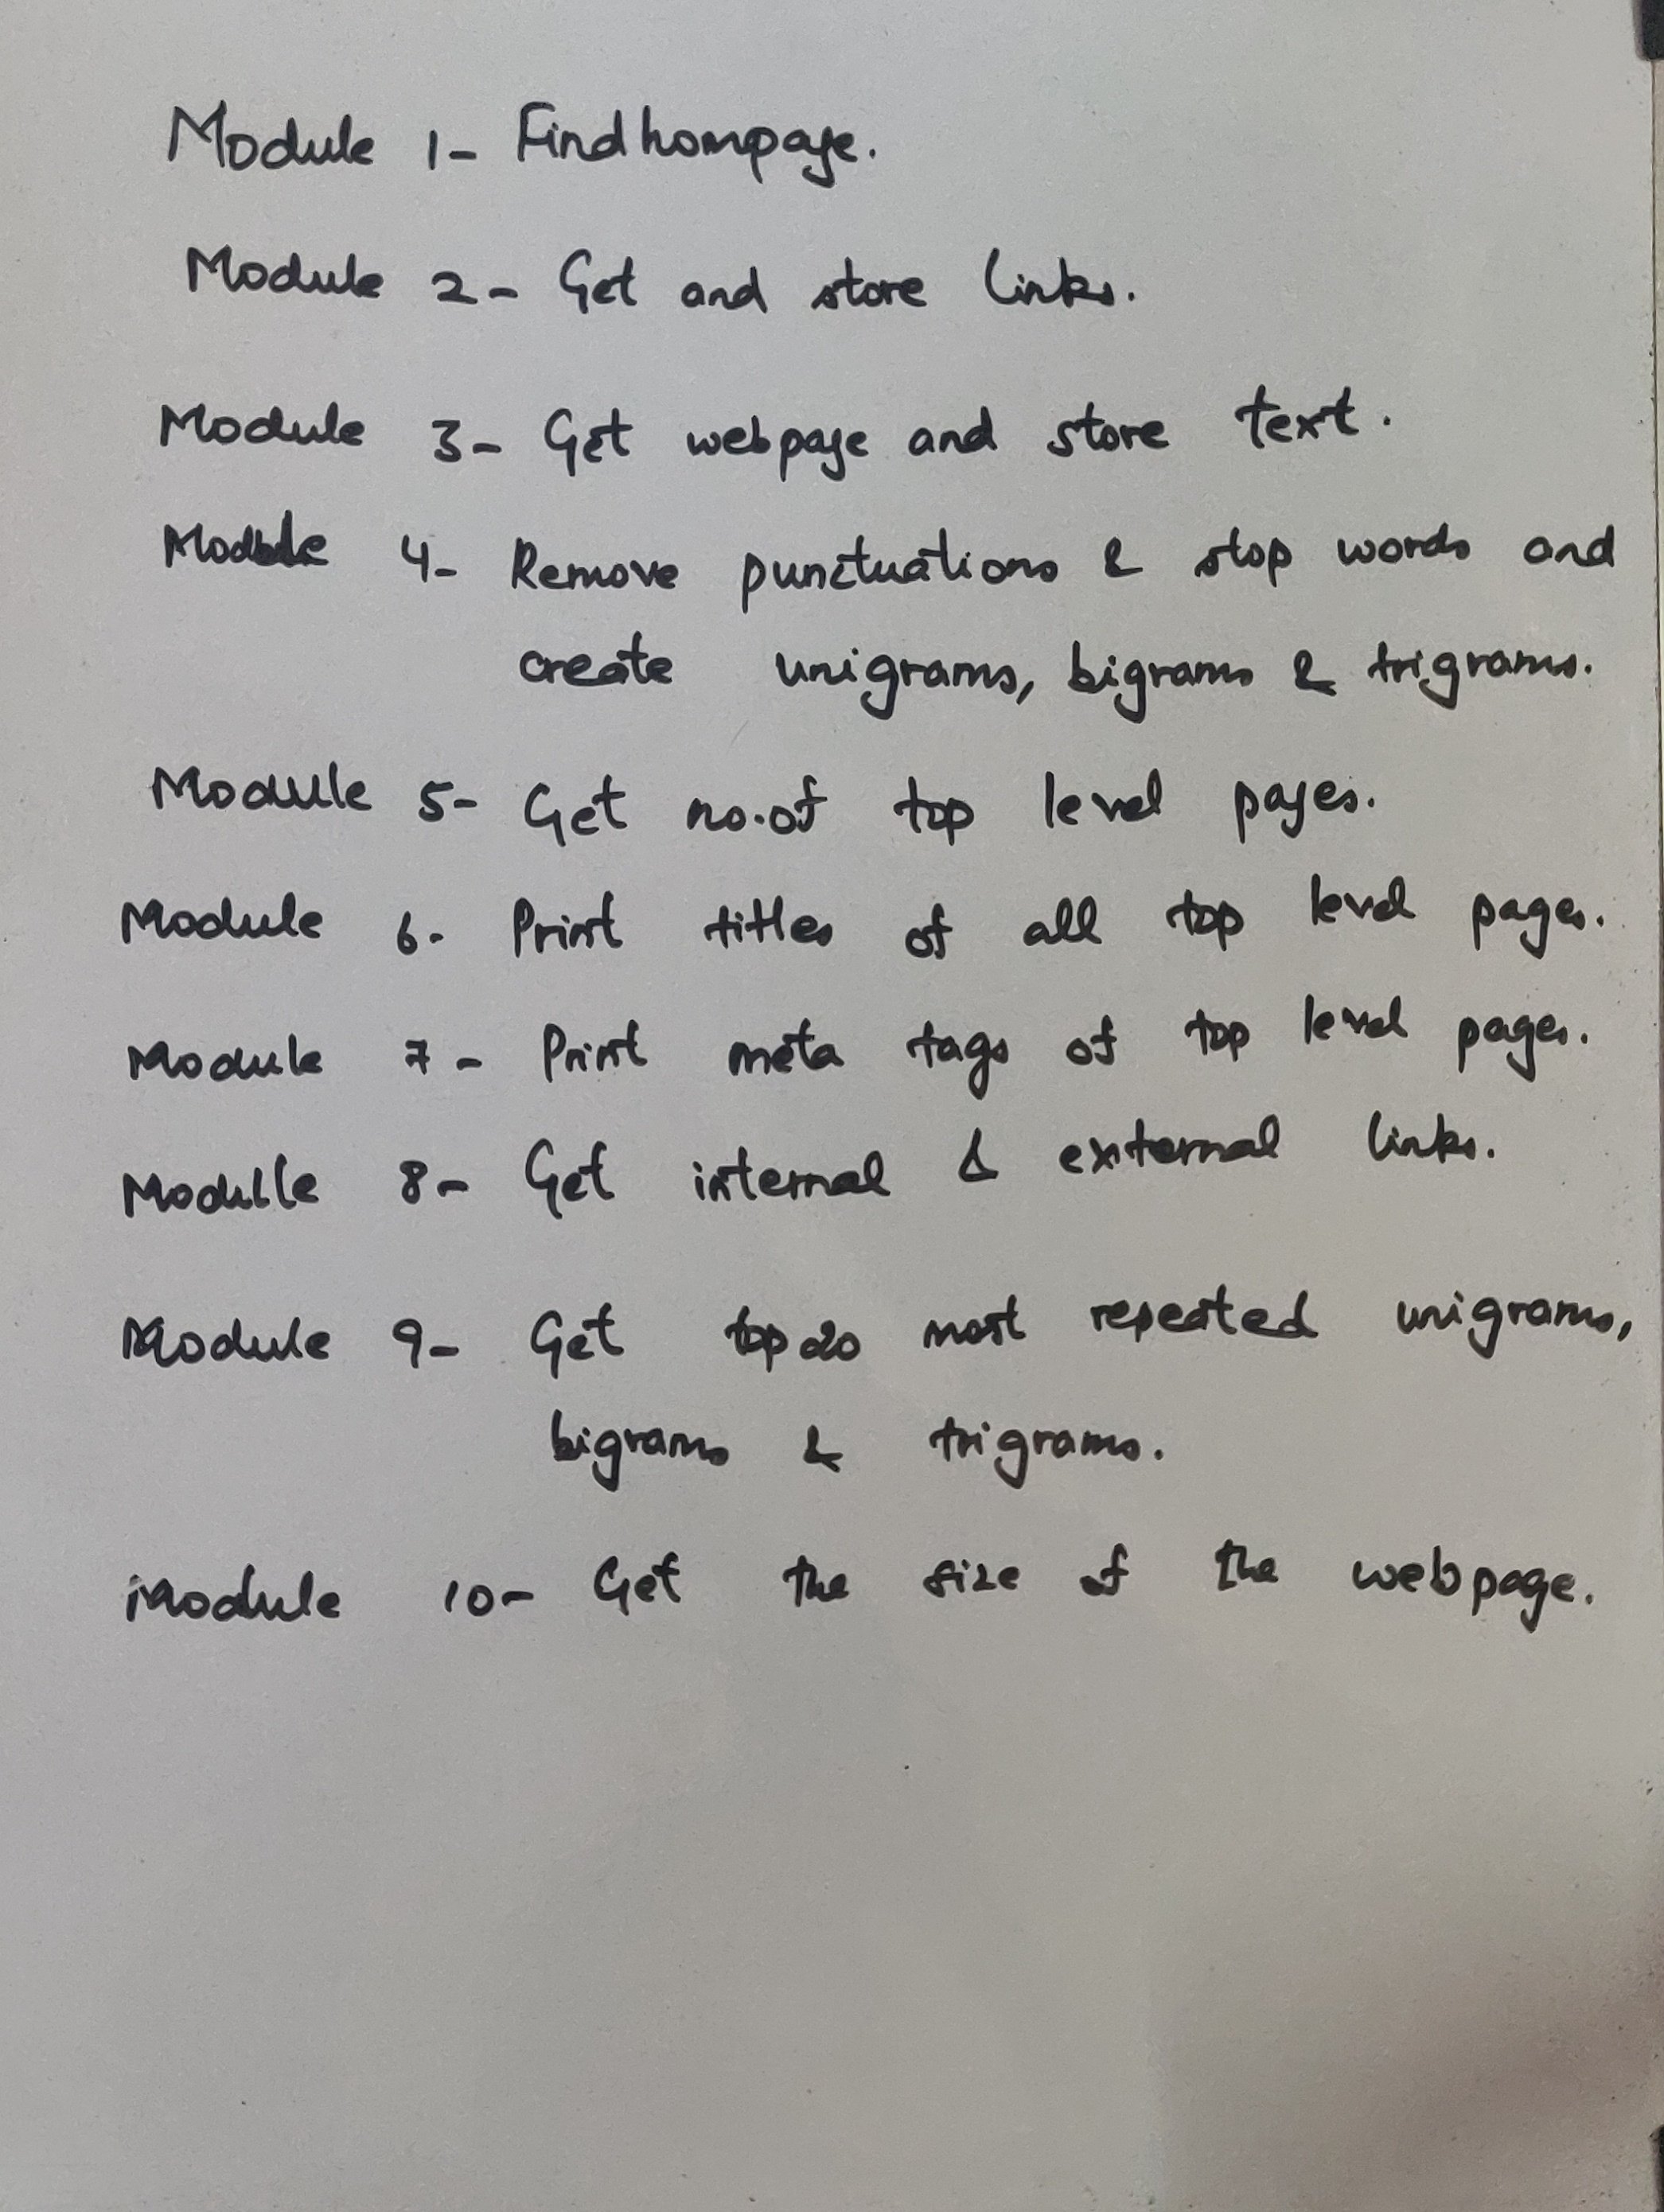 Module 1- Find hompage.
Module 2- Get and store links.
Module 3- Get webpage and store text.
Module 4- Remove punctuations & stop words and
create unigrams, bigrams & trigrams.
Module 5- Get no.of top level pages.
Module 6- Print titles of all top level pages.
Module 7- Print meta tags of top level pages.
Module 8- Get internal & external links.
Module 9- Get top 20 most repeated unigrams,
bigrams & trigrams.
Module 10- Get the size of the webpage.